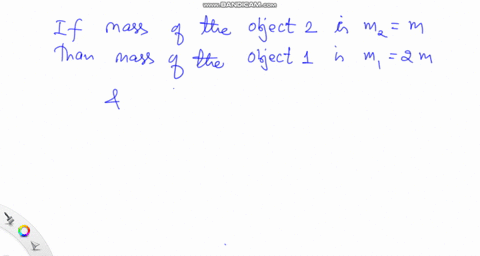 www.BANDICAM.com
If mass of the object 2 is m₂ = m
Than mass of the object 1 is m₁ = 2m
&